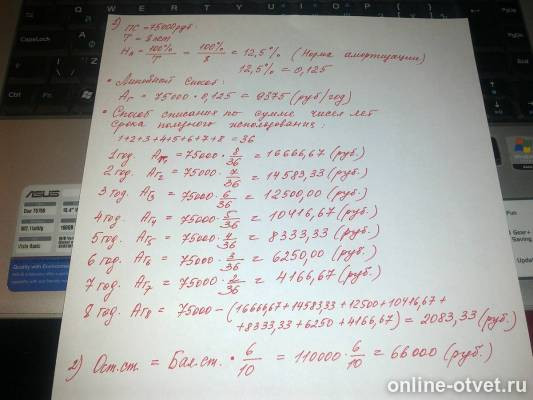 1) ПС = 75000 руб.
Т = 8 лет
На = 100%/Т = 100%/8 = 12,5% (Норма амортизации)
12,5% = 0,125
• Линейный способ:
Аг = 75000 · 0,125 = 9375 (руб/год)
• Способ списания по сумме чисел лет
срока полезного использования:
1+2+3+4+5+6+7+8 = 36
1 год. Аг1 = 75000 · 8/36 = 16666,67 (руб.)
2 год. Аг2 = 75000 · 7/36 = 14583,33 (руб.)
3 год. Аг3 = 75000 · 6/36 = 12500,00 (руб.)
4 год. Аг4 = 75000 · 5/36 = 10416,67 (руб.)
5 год. Аг5 = 75000 · 4/36 = 8333,33 (руб.)
6 год. Аг6 = 75000 · 3/36 = 6250,00 (руб.)
7 год. Аг7 = 75000 · 2/36 = 4166,67 (руб.)
8 год. Аг8 = 75000 – (16666,67+14583,33+12500+10416,67+
+8333,33+6250+4166,67) = 2083,33 (руб.)
2) Ост.ст. = Бал.ст. · 6/10 = 110000 · 6/10 = 66000 (руб.)
ASUS
online-otvet.ru